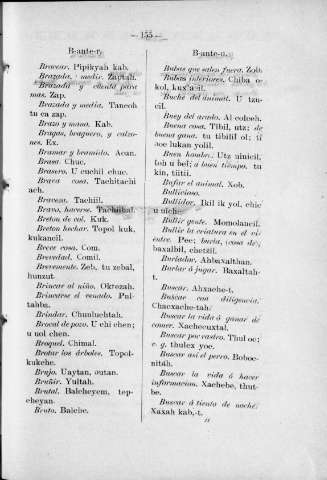 — 155 —
B-ante-r.
Bracear. Pipikyah kab.
Brazada, medir. Zaptah.
Brazada y cuenta para
mas. Zap.
Brazada y media. Tancoh
tu ca zap.
Brazo y mano. Kab.
Bragas, braguero, y calzo-
nes. Ex.
Bramar y bramido. Acan.
Brasa. Chuc.
Brasero. U cuchil chuc.
Brava cosa. Tachitachi
ach.
Braveza. Tachiil.
Bravo, hacerse. Tachihal.
Breton de col. Kuk.
Breton hechar. Topol kuk,
kukancil.
Breve cosa. Com.
Brevedad. Comil.
Brevemente. Zeb, tu zebal,
hunzut.
Brincar al niño. Okrezah.
Brincarse el venado. Pul-
tahba.
Brindar. Chunluchtah.
Brocal de pozo. U chi chen;
u uol chen.
Broquel. Chimal.
Brotar los árboles. Topol-
kukche.
Brujo. Uaytan, outan.
Bruñir. Yultah.
Brutal. Balcheyem, tep-
cheyan.
Bruto. Balche.
B-ante-u.
Bubas que salen fuera. Zob.
Bubas interiores. Chiba o-
kol, kux'a il.
Buche del animal. U tzu-
cil.
Buey del arado. Al coloch.
Buena cosa. Tibil, utz; de
buena gana. tu tibilil ol; ti
ooc lukan yolil.
Buen hombre. Utz uinicil,
loh u bel; a buen tiempo. tu
kin, tiitii.
Bufar el animal. Xob.
Bullicioso.
Bullidor. Ikil ik yol, chic
u uich.
Bullir gente. Momolancil.
Bullir la criatura en el vi-
entre. Pec; burla, (cosa de)
baxalbil, chetzil.
Burlador. Ahbaxalthan.
Burlar á jugar. Baxaltah-
t.
Buscar. Ahxache-t.
Buscar con diligencia.
Chacxache-tah.
Buscar la vida ó ganar de
comer. Xachocuxtal.
Buscar por rastro. Thul oc;
v. g. thulex yoc.
Buscar así el perro. Boboc-
nitah.
Buscar la vida ó hacer
informacion. Xachebe, thut-
be.
Buscar á tiento de noche.
Xaxah kab,-t.